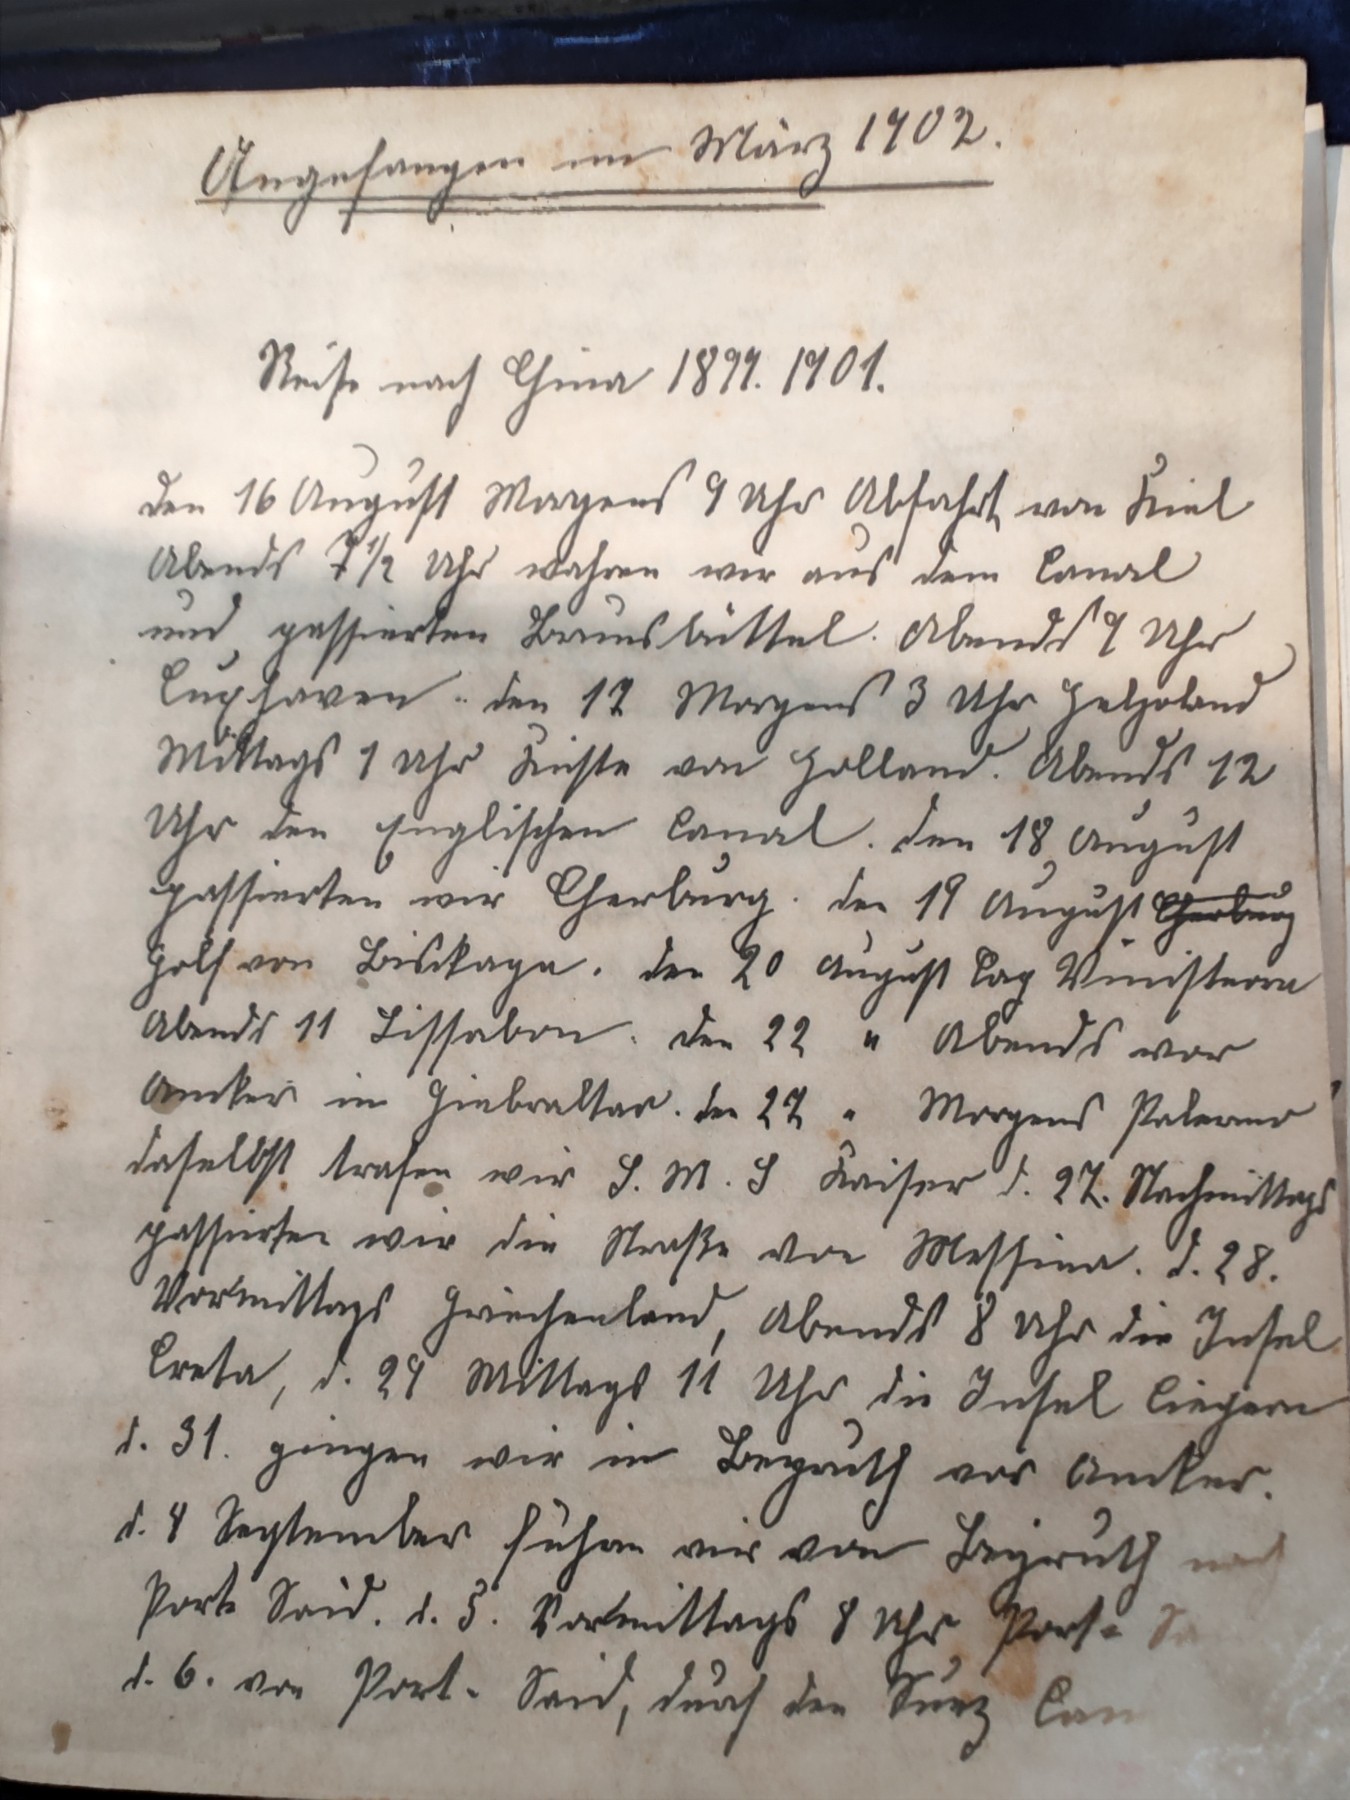 Angefangen im März 1902.
Reise nach China 1899. 1901.
den 16 August Morgens 9 Uhr Abfahrt von Kiel
Abends 7 1/2 Uhr wahren wir aus dem Canal
und passierten Brunsbüttel. Abends 9 Uhr
Cuxhaven. den 17 Morgens 3 Uhr Helgoland
Mittags 1 Uhr Küste von Holland. Abends 12
Uhr den Englischen Canal. den 18 August
passierten wir Cherburg. den 19 August Cherburg
Golf von Biskaya. den 20 August Cap
Abends 11 Lissabon. den 22 " Abends vor
Anker in Giebraltar. den 27 " Morgens Palermo
daselbst trafen wir S. M. S Kaiser d. 27. Nachmittags
passierten wir die Straße von Messina. d. 28.
Vormittags Griechenland, Abends 8 Uhr die Insel
Creta, d. 29 Mittags 11 Uhr die Insel
d. 31. gingen wir in Beyruth vor Anker.
d. 4 September fuhren wir von Beyruth nach
Port Said. d. 5. Vormittags 8 Uhr Port-
d. 6. von Port-Said, durch den Suez